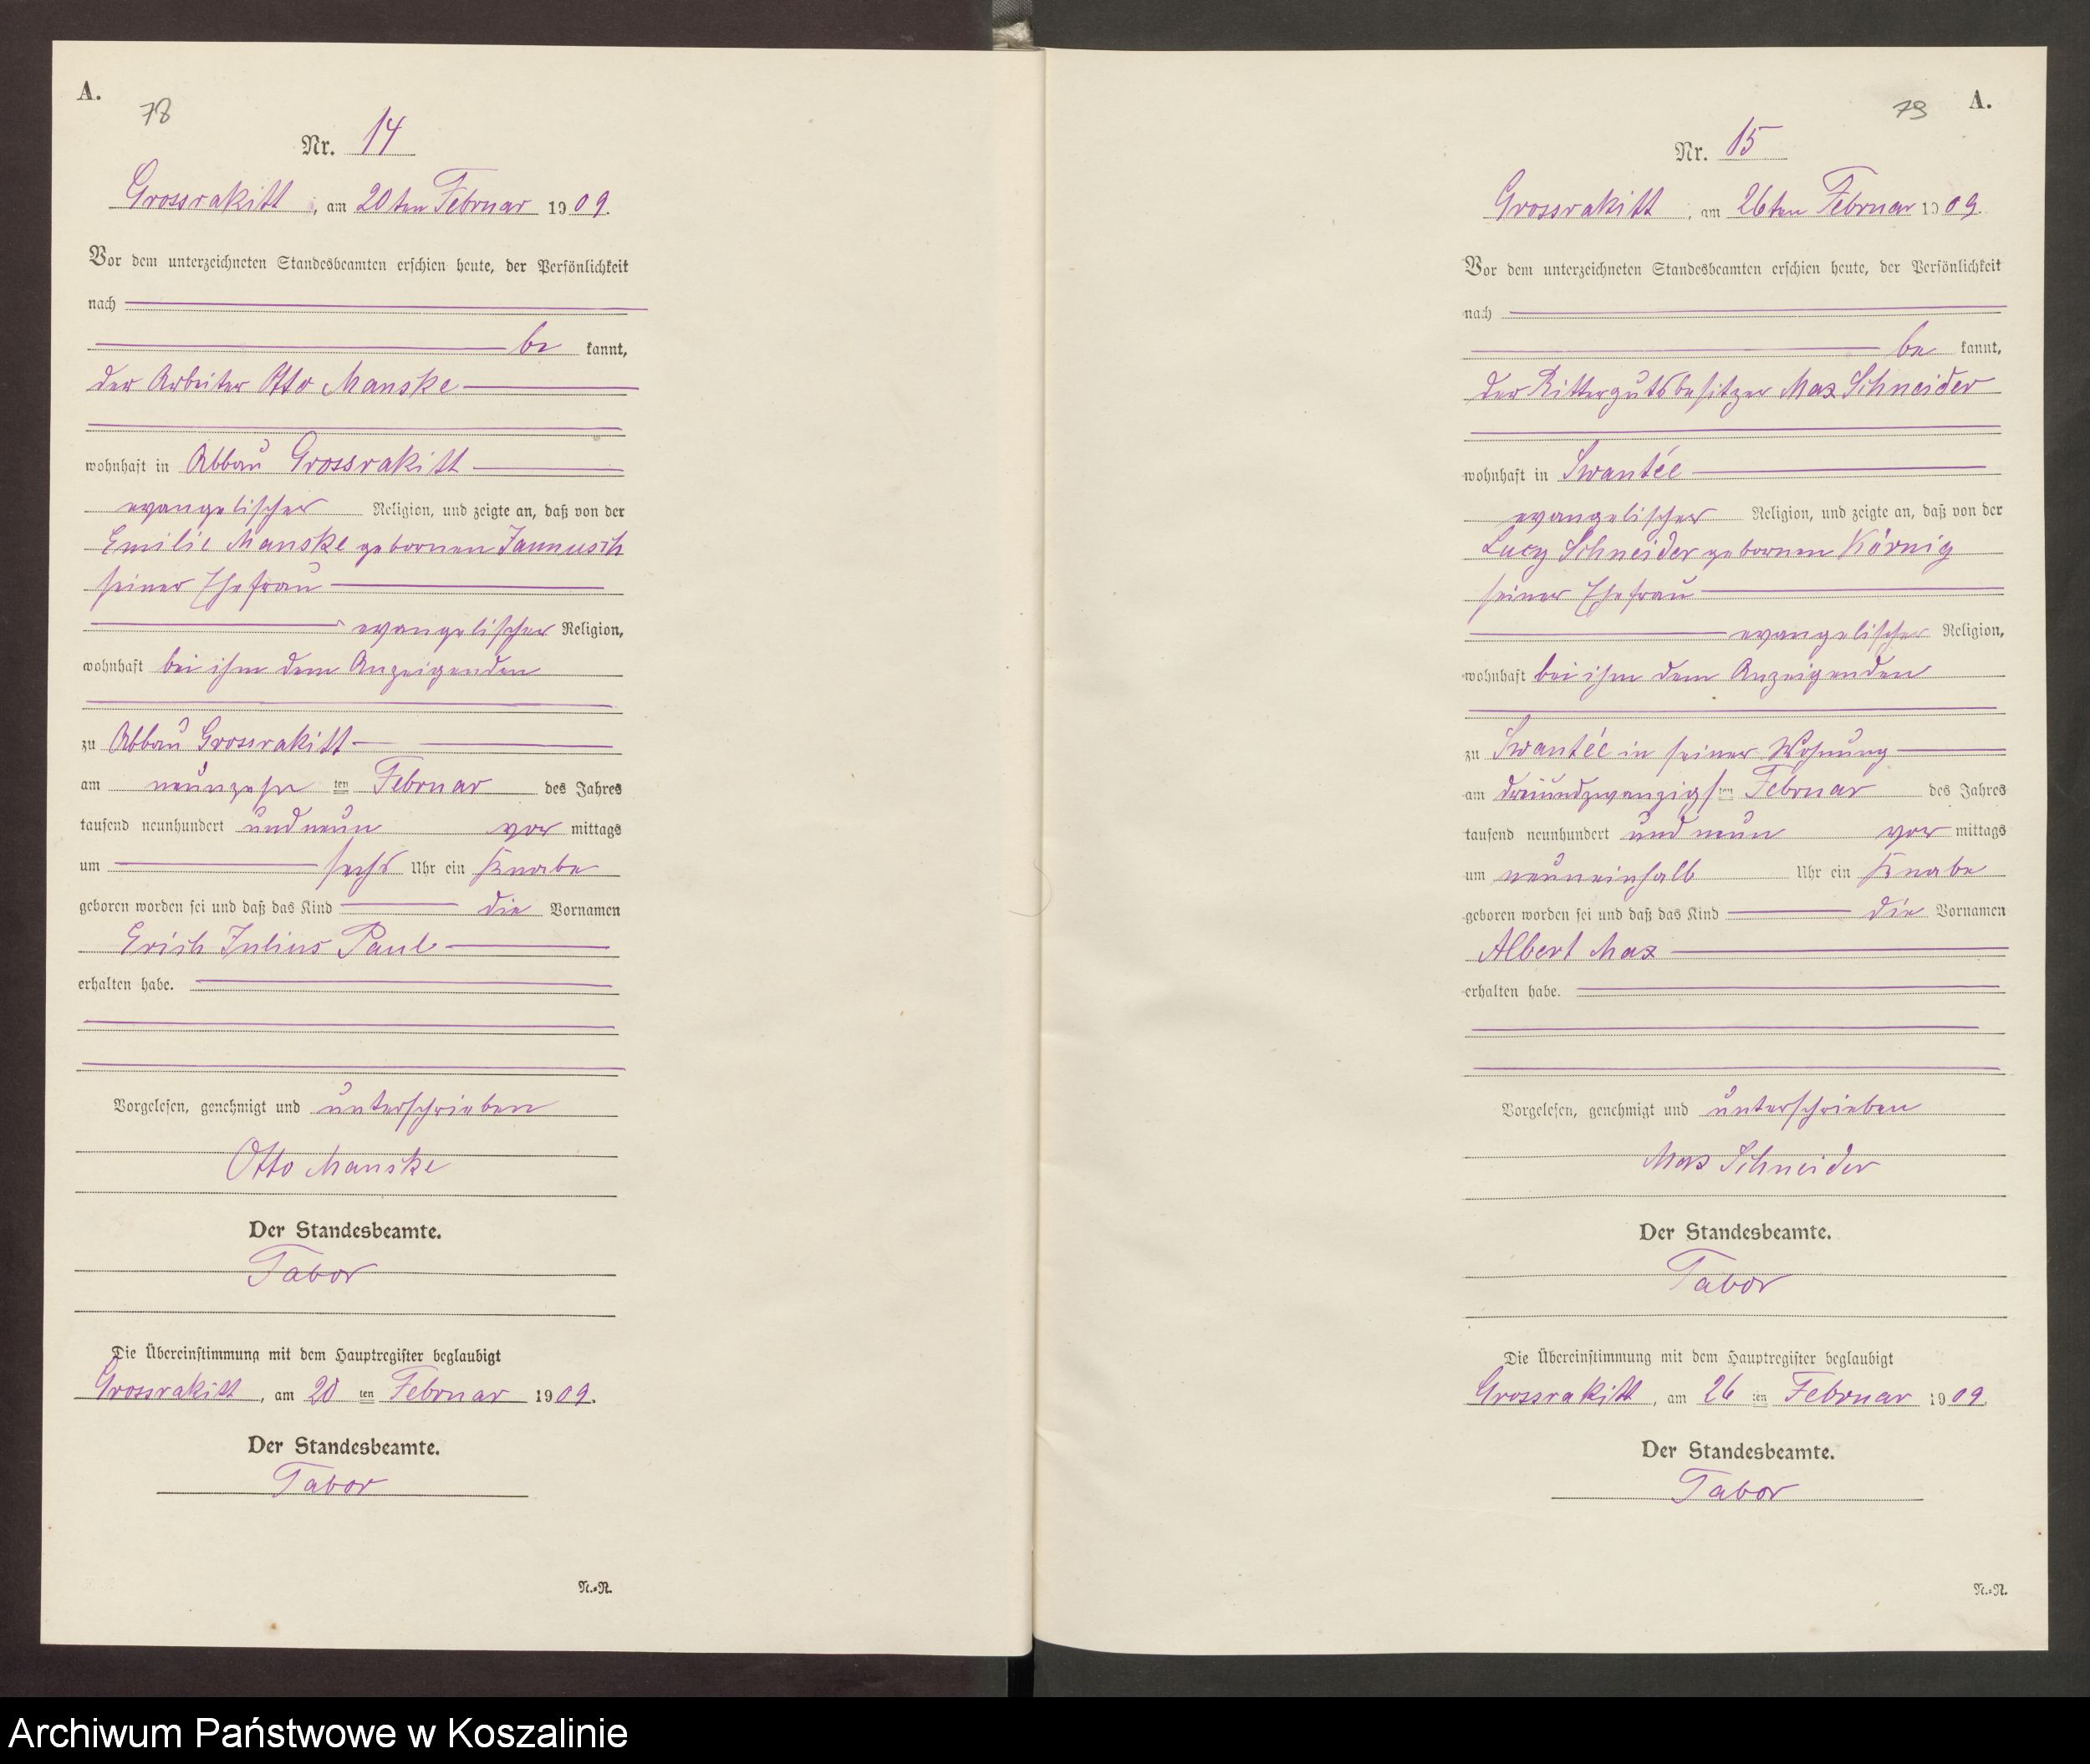 A.
78
Nr. 14
Grossrakitt, am 20ten Februar 1909.
Vor dem unterzeichneten Standesbeamten erschien heute, der Persönlichkeit
nach
be kannt,
der Arbeiter Otto Manske
wohnhaft in Abbau Grossrakitt
evangelischer Religion, und zeigte an, daß von der
Emilie Manske gebornen Jannusch
seiner Ehefrau
evangelischer Religion,
wohnhaft bei ihm dem Anzeigenden
zu Abbau Grossrakitt
am neunzehn ten Februar des Jahres
tausend neunhundert und neun vor mittags
um sechs Uhr ein Knabe
geboren worden sei und daß das Kind die Vornamen
Erich Julius Paul
erhalten habe.
Vorgelesen, genehmigt und unterschrieben
Otto Manske
Der Standesbeamte.
Tabor
Die Übereinstimmung mit dem Hauptregister beglaubigt
Grossrakitt, am 20 ten Februar 1909.
Der Standesbeamte.
Tabor
N.=N.
79
A.
Nr. 15
Grossrakitt, am 26ten Februar 1909.
Vor dem unterzeichneten Standesbeamten erschien heute, der Persönlichkeit
nach
be kannt,
der Rittergutsbesitzer Max Schneider
wohnhaft in Swantée
evangelischer Religion, und zeigte an, daß von der
Lucy Schneider gebornen Körnig
seiner Ehefrau
evangelischer Religion,
wohnhaft bei ihm dem Anzeigenden
zu Swantée in seiner Wohnung
am dreiundzwanzigsten Februar des Jahres
tausend neunhundert und neun vor mittags
um neuneinhalb Uhr ein Knabe
geboren worden sei und daß das Kind die Vornamen
Albert Max
erhalten habe.
Vorgelesen, genehmigt und unterschrieben
Max Schneider
Der Standesbeamte.
Tabor
Die Übereinstimmung mit dem Hauptregister beglaubigt
Grossrakitt, am 26 ten Februar 1909.
Der Standesbeamte.
Tabor
N.=N.
Archiwum Państwowe w Koszalinie